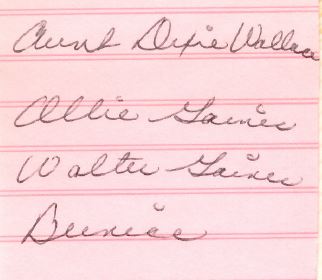 Aunt Dixie Wallace
Ollie Gaines
Walter Gaines
Bernice